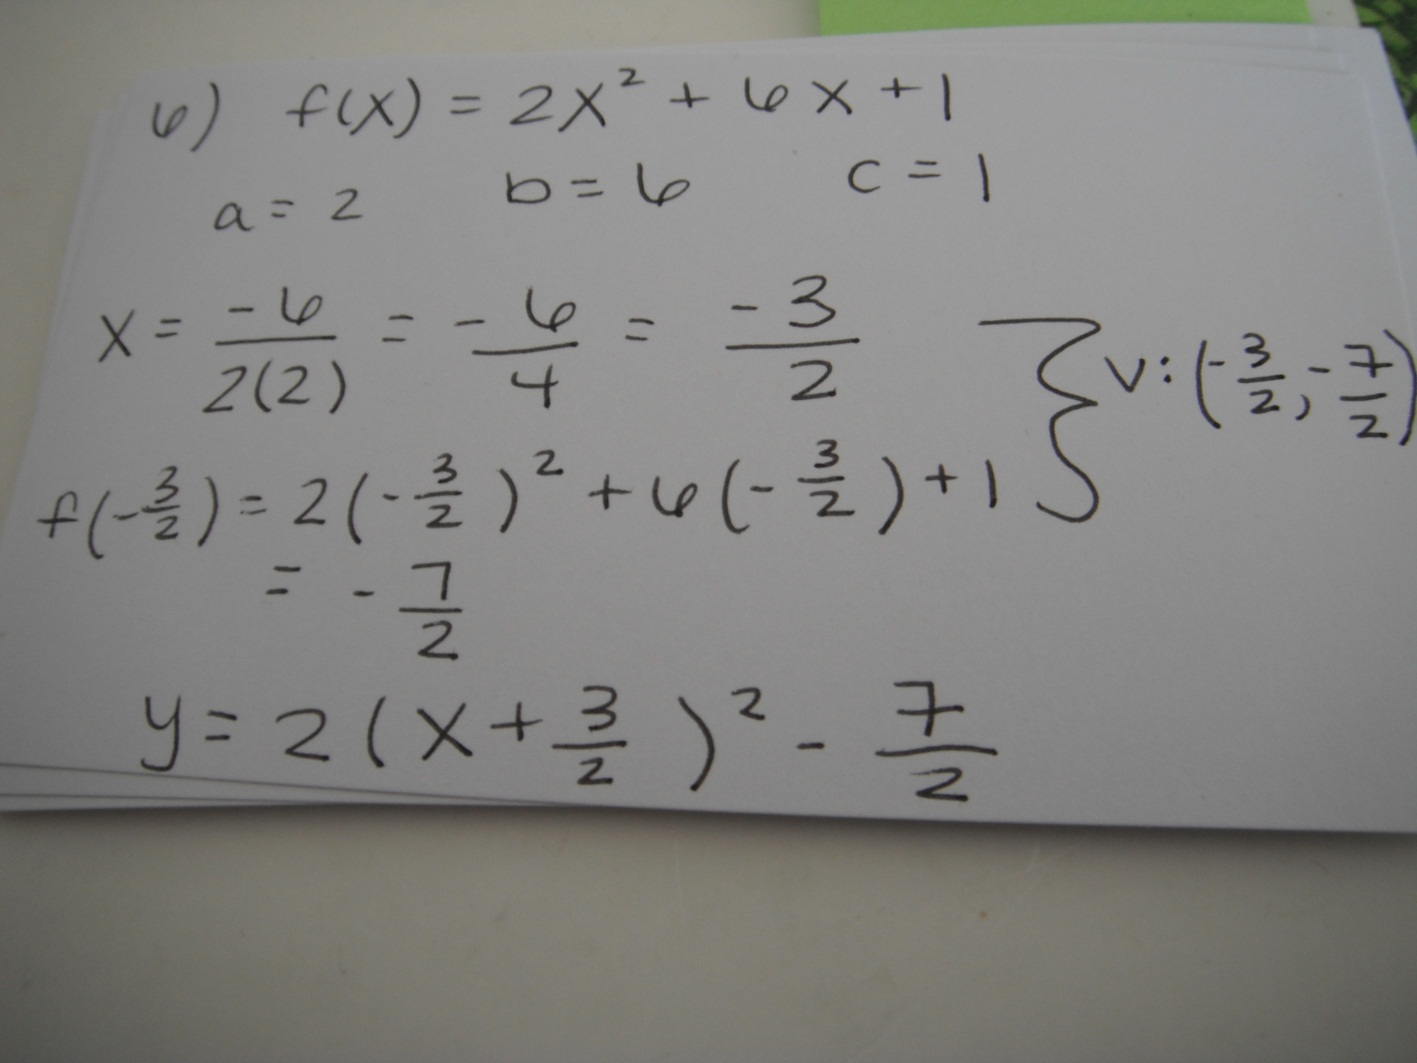 6) f(x) = 2x² + 6x + 1
a = 2 b = 6 c = 1
x = -6/2(2) = -6/4 = -3/2 } V: (-3/2, -7/2)
f(-3/2) = 2(-3/2)² + 6(-3/2) + 1
= -7/2
y = 2(x + 3/2)² - 7/2